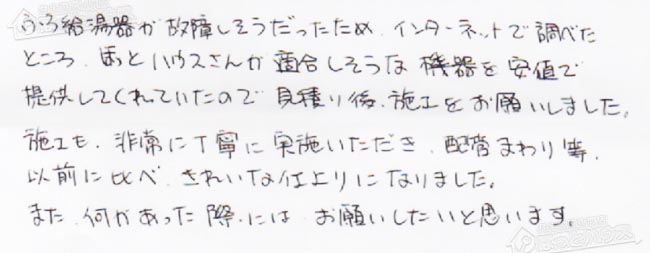 ふろ給湯器が故障しそうだったため、インターネットで調べた
ところ、ほっとハウスさんが適合しそうな機器を安値で
提供してくれていたので見積り後、施工をお願いしました。
施工も、非常に丁寧に実施いただき、配管まわり等、
以前に比べ、きれいな仕上りになりました。
また、何かあった際には、お願いしたいと思います。